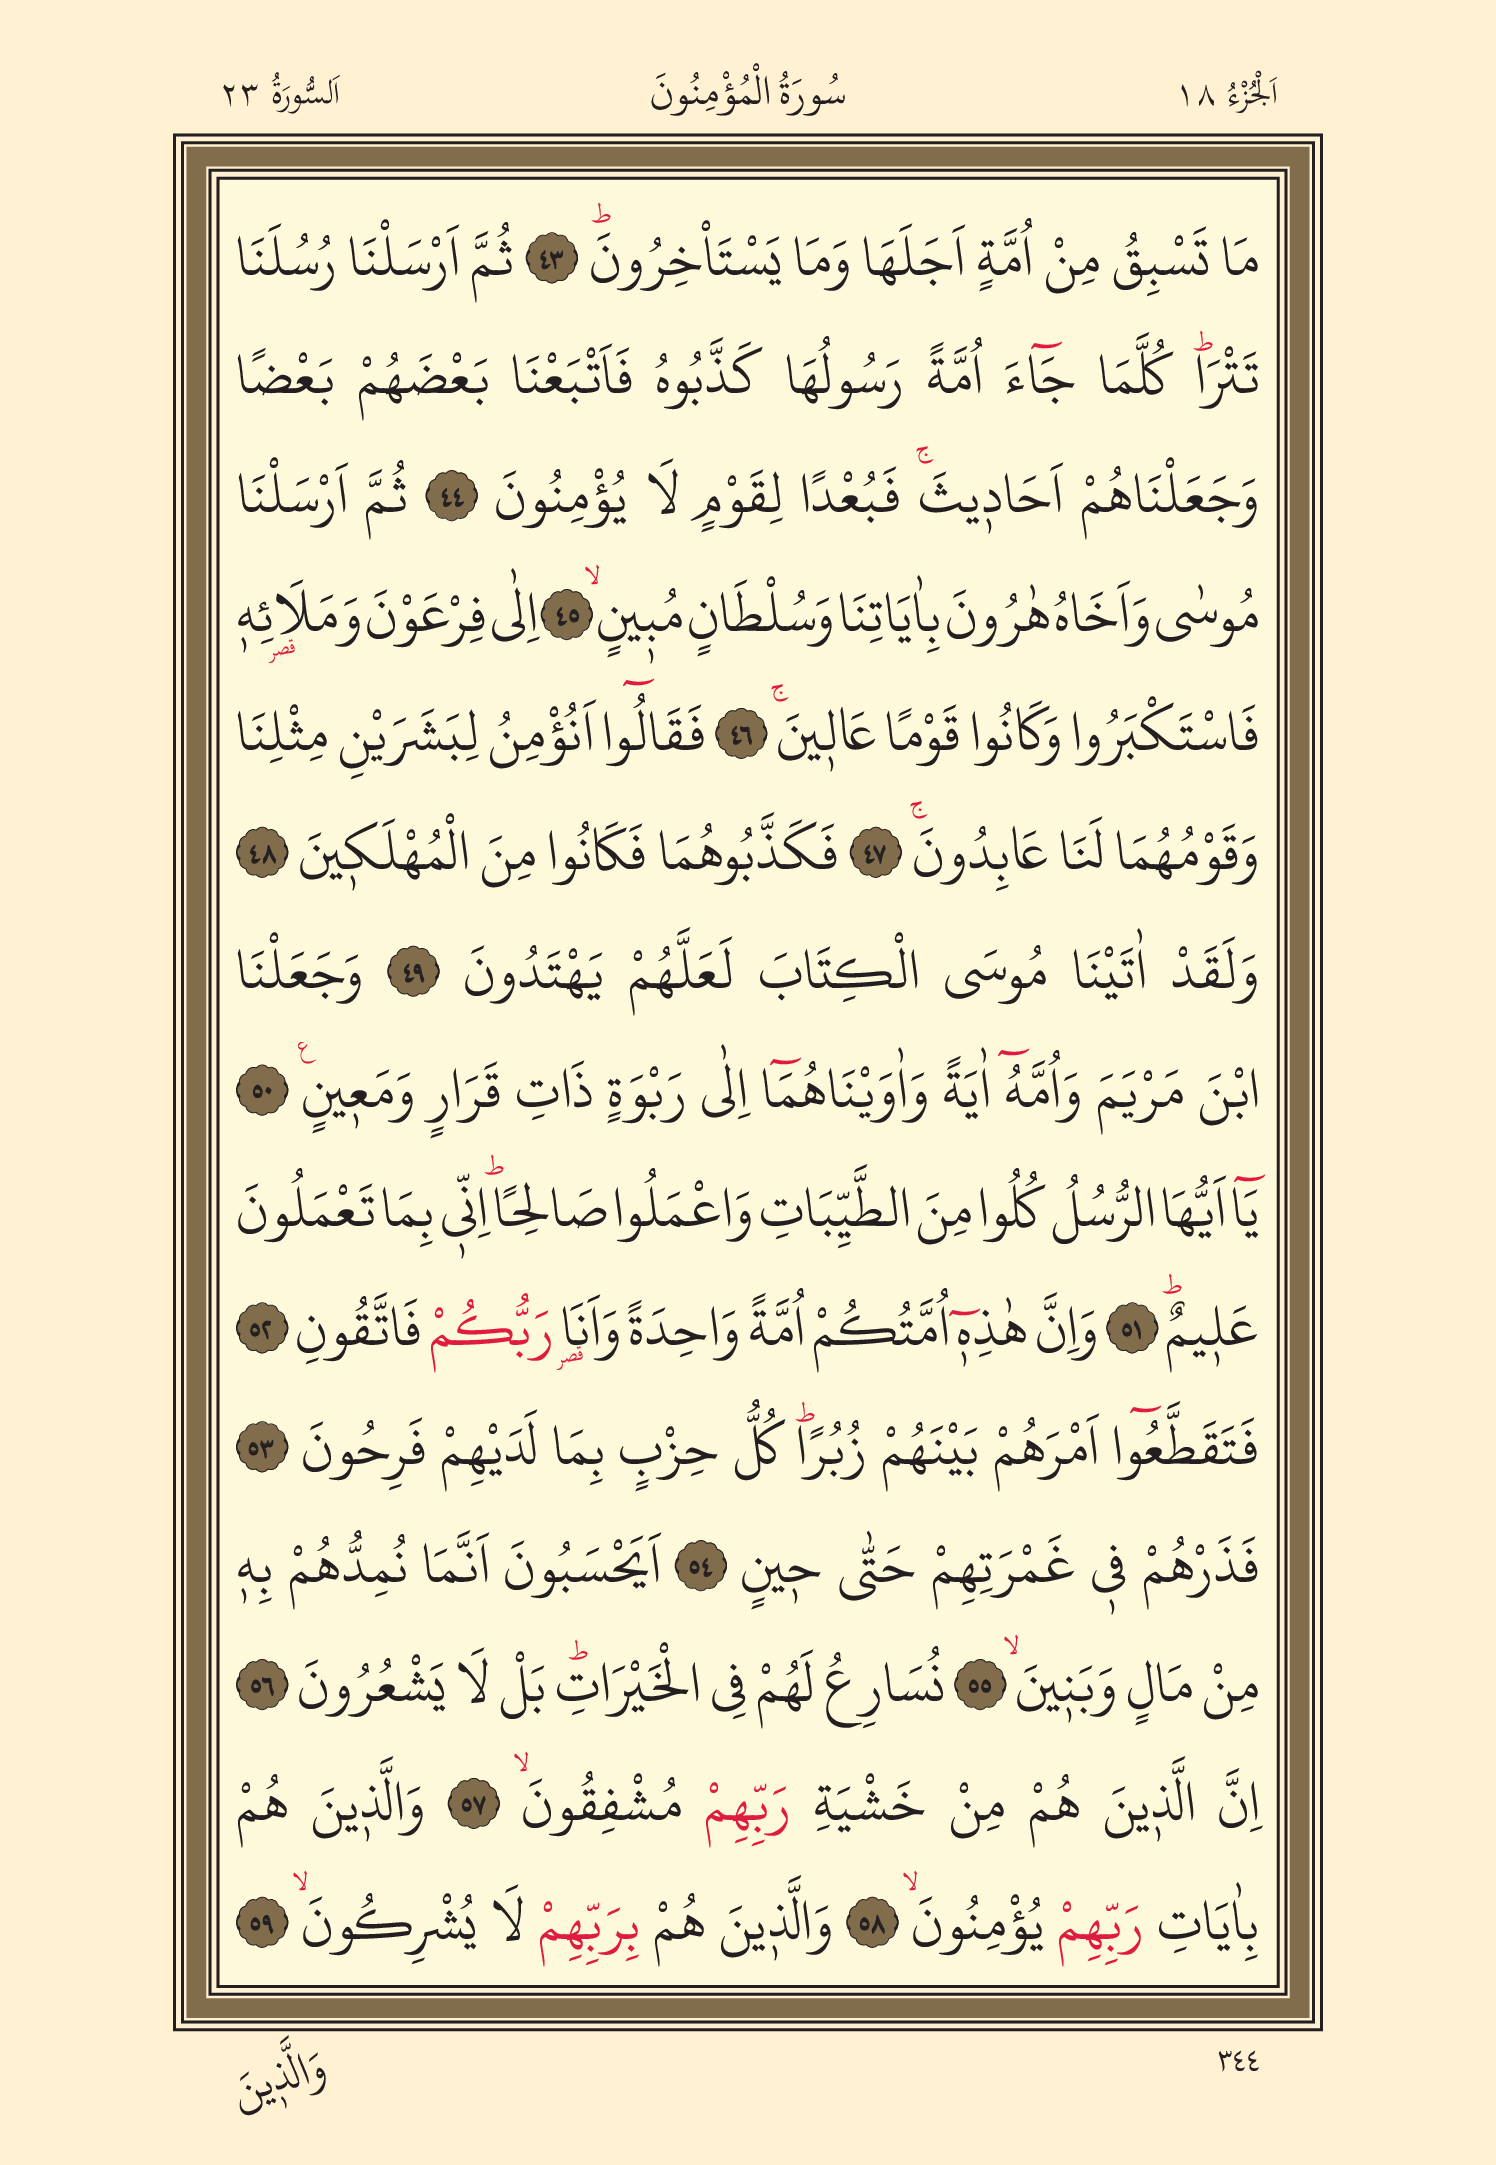 اَلْجُزْءُ ١٨
سُورَةُ الْمُؤْمِنُونَ
اَلسُّورَةُ ٢٣
مَا تَسْبِقُ مِنْ اُمَّةٍ اَجَلَهَا وَمَا يَسْتَأْخِرُونَۜ ٤٣ ثُمَّ اَرْسَلْنَا رُسُلَنَا
تَتْرَاۜ كُلَّمَا جَٓاءَ اُمَّةً رَسُولُهَا كَذَّبُوهُ فَاَتْبَعْنَا بَعْضَهُمْ بَعْضًا
وَجَعَلْنَاهُمْ اَحَاد۪يثَۚ فَبُعْدًا لِقَوْمٍ لَا يُؤْمِنُونَ ٤٤ ثُمَّ اَرْسَلْنَا
مُوسٰى وَاَخَاهُ هٰرُونَ بِاٰيَاتِنَا وَسُلْطَانٍ مُب۪ينٍۙ ٤٥ اِلٰى فِرْعَوْنَ وَمَلَائِه۪ قصر
فَاسْتَكْبَرُوا وَكَانُوا قَوْمًا عَال۪ينَۚ ٤٦ فَقَالُٓوا اَنُؤْمِنُ لِبَشَرَيْنِ مِثْلِنَا
وَقَوْمُهُمَا لَنَا عَابِدُونَۚ ٤٧ فَكَذَّبُوهُمَا فَكَانُوا مِنَ الْمُهْلَك۪ينَ ٤٨
وَلَقَدْ اٰتَيْنَا مُوسَى الْكِتَابَ لَعَلَّهُمْ يَهْتَدُونَ ٤٩ وَجَعَلْنَا
ابْنَ مَرْيَمَ وَاُمَّهُٓ اٰيَةً وَاٰوَيْنَاهُمَٓا اِلٰى رَبْوَةٍ ذَاتِ قَرَارٍ وَمَع۪ينٍ ع ٥٠
يَٓا اَيُّهَا الرُّسُلُ كُلُوا مِنَ الطَّيِّبَاتِ وَاعْمَلُوا صَالِحًاۜ اِنّ۪ى بِمَا تَعْمَلُونَ
عَل۪يمٌۜ ٥١ وَاِنَّ هٰذِه۪ٓ اُمَّتُكُمْ اُمَّةً وَاحِدَةً وَاَنَا۬ قصر رَبُّكُمْ فَاتَّقُونِ ٥٢
فَتَقَطَّعُٓوا اَمْرَهُمْ بَيْنَهُمْ زُبُرًاۜ كُلُّ حِزْبٍ بِمَا لَدَيْهِمْ فَرِحُونَ ٥٣
فَذَرْهُمْ ف۪ى غَمْرَتِهِمْ حَتّٰى ح۪ينٍ ٥٤ اَيَحْسَبُونَ اَنَّمَا نُمِدُّهُمْ بِه۪
مِنْ مَالٍ وَبَن۪ينَۙ ٥٥ نُسَارِعُ لَهُمْ فِى الْخَيْرَاتِۜ بَلْ لَا يَشْعُرُونَ ٥٦
اِنَّ الَّذ۪ينَ هُمْ مِنْ خَشْيَةِ رَبِّهِمْ مُشْفِقُونَۙ ٥٧ وَالَّذ۪ينَ هُمْ
بِاٰيَاتِ رَبِّهِمْ يُؤْمِنُونَۙ ٥٨ وَالَّذ۪ينَ هُمْ بِرَبِّهِمْ لَا يُشْرِكُونَۙ ٥٩
٣٤٤
وَالَّذ۪ينَ